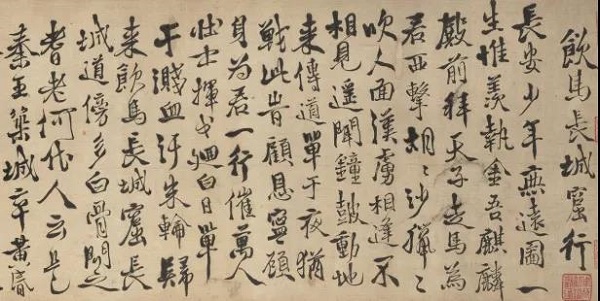 飲馬長城窟行
長安少年無遠圖一
生惟羨執金吾麒麟
殿前拜天子走馬為
君西擊胡〻沙獵〻
吹人面漢虜相逢不
相見遥聞鐘鼓動地
来傳道單于夜猶
戰此旹顧恩寧顧
身為君一行摧萬人
壮士揮戈迴白日單
于濺血汙朱輪歸
来飲馬長城窟長
城道傍多白骨問之
耆老何代人云是
秦王築城卒黃昏